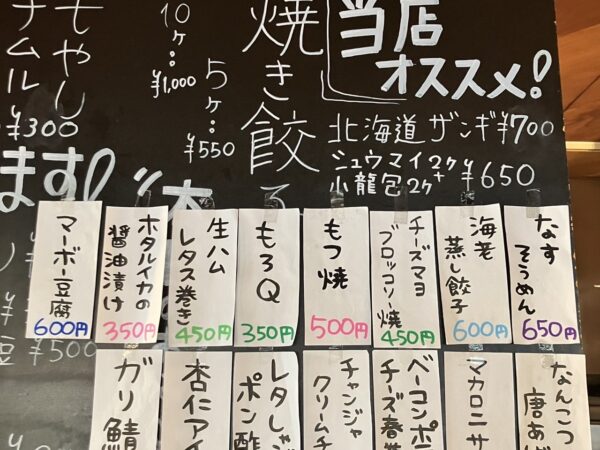 当店
オススメ!
北海道ザンギ ¥700
シュウマイ2ヶ+
小龍包2ヶ
¥650
焼き餃
5ヶ…
¥550
10ヶ…
¥1,000
もやし
ナムル
¥300
ます!
なす
そうめん
650円
海老
蒸し餃子
600円
チーズマヨ
ブロッコリー焼
450円
もつ焼
500円
もろQ
350円
生ハム
レタス巻き
450円
ホタルイカの
醤油漬け
350円
マーボー豆腐
600円
¥500
なんこつ
唐あげ
マカロニサ
ベーコンポテ
チーズ春巻
チャンジャ
クリームチ
レタしゃ
ポン酢
杏仁アイ
ガリ鯖